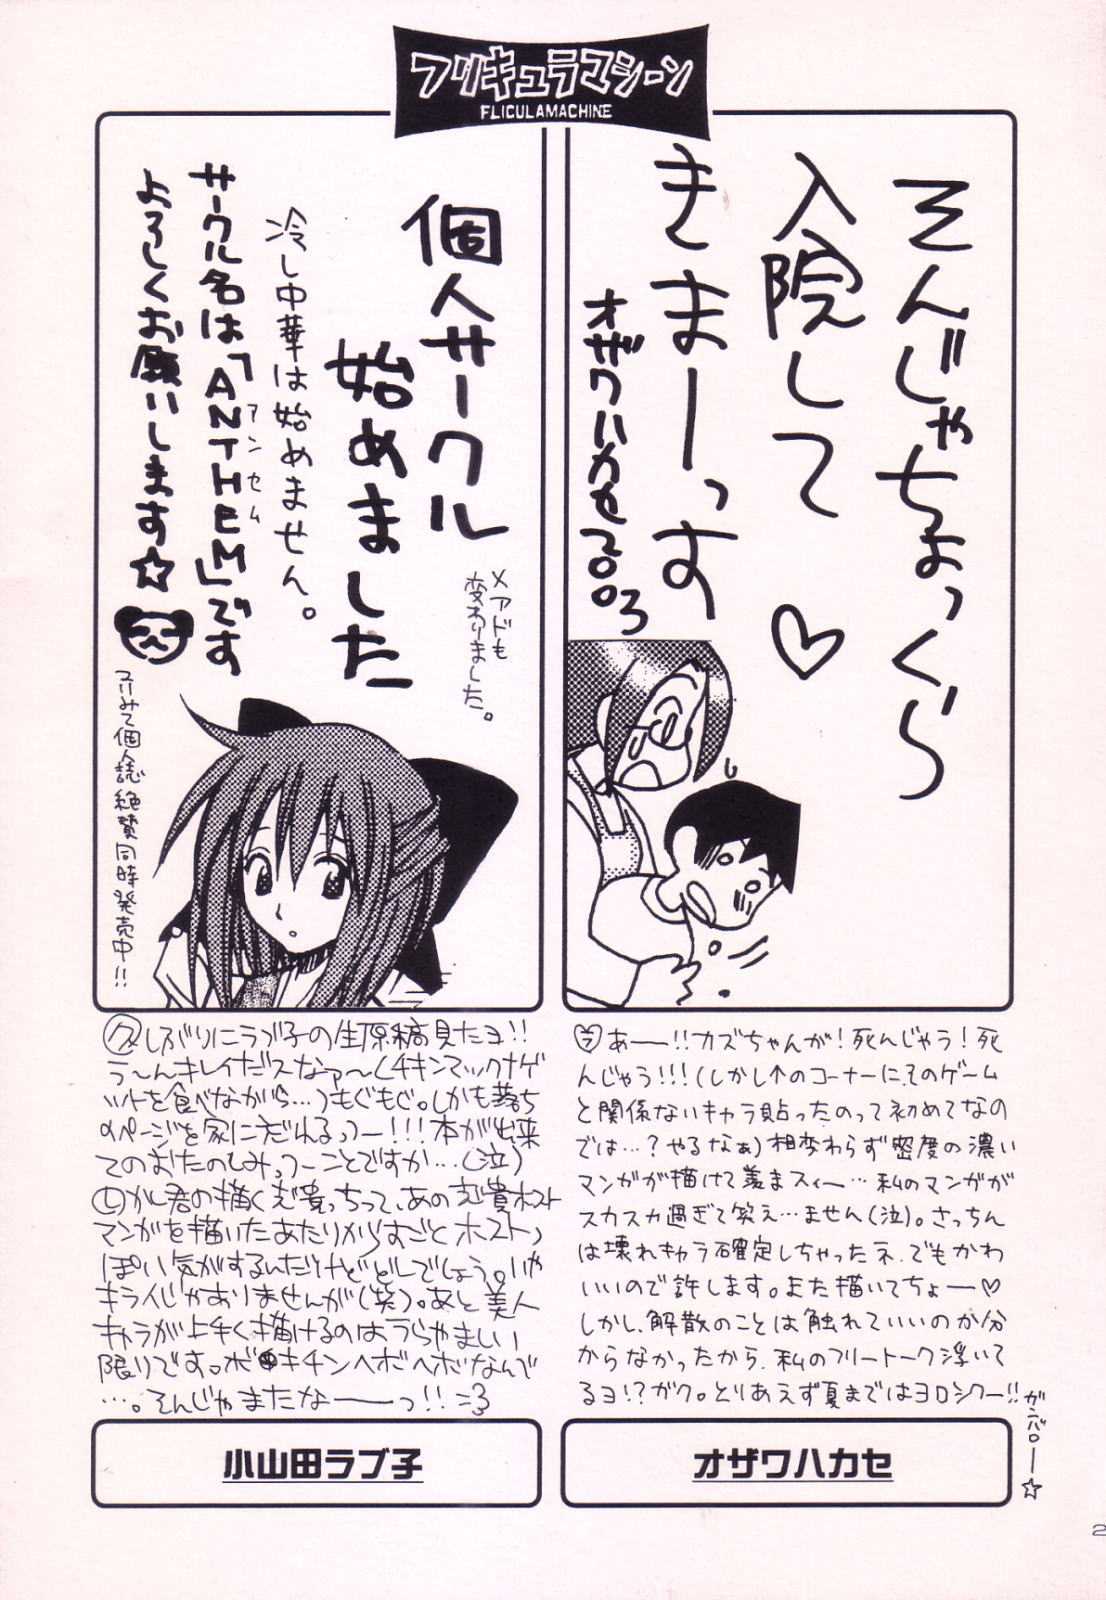 フリキュラマシーン
FLICULAMACHINE
そんじゃちょっくら
入院して
きまーっす
♡
オザワハカセ2003
個人サークル
始めました
メアドも
変わりました。
冷し中華は始めません。
サークル名は「ANTHEM」です
アンセム
よろしくお願いします☆
個人誌絶賛同時発売中!!
あー!!カズちゃんが!死んじゃう!死
んじゃう!!!(しかし↑のコーナーにそのゲーム
と関係ないキャラ貼ったのって初めてなの
では…?やるなぁ)相変わらず密度の濃い
マンガが描けて羨まスィー…私のマンガが
スカスカ過ぎて笑え…ません(泣)。さっちん
は壊れキャラ確定しちゃったネ.でもかわ
いいので許します。また描いてちょー♡
しかし、解散のことは触れていいのか分
からなかったから、私のフリートーク浮いて
るヨ!?ガク。とりあえず夏まではヨロシクー!!
ガンバロー☆
しぶりにラブ子の生原稿見たヨ!!
う〜んキレイだスなァ〜(チキンマックナゲ
ットを食べながら…)もぐもぐ。しかも落ち
のページを家に忘れるっつー!!!本が出来
てのおたのしみっつーことですか…(泣)
しかし君の描く兄貴っちって、あの兄貴ホスト
マンガを描いたあたりからすごくホストっ
ぽい気がするんだけどどーでしょう。いや
キライじゃありませんが(笑)。あと美人
キャラが上手く描けるのはうらやましい
限りです。ボキチンヘボヘボなんで
…。そんじゃまたなーーっ!!
小山田ラブ子
オザワハカセ
2